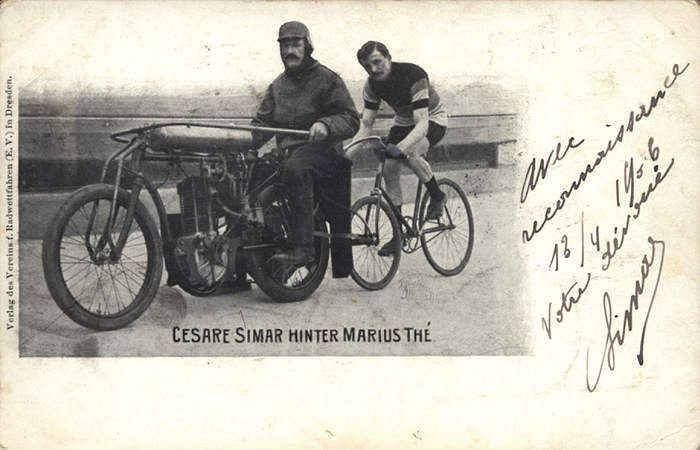 Verlag des Vereins f. Radwettfahren (E. V.) in Dresden.
CESARE SIMAR HINTER MARIUS THÉ
Avec
reconnaissance
13/4 1906
Votre dévoué
Simar